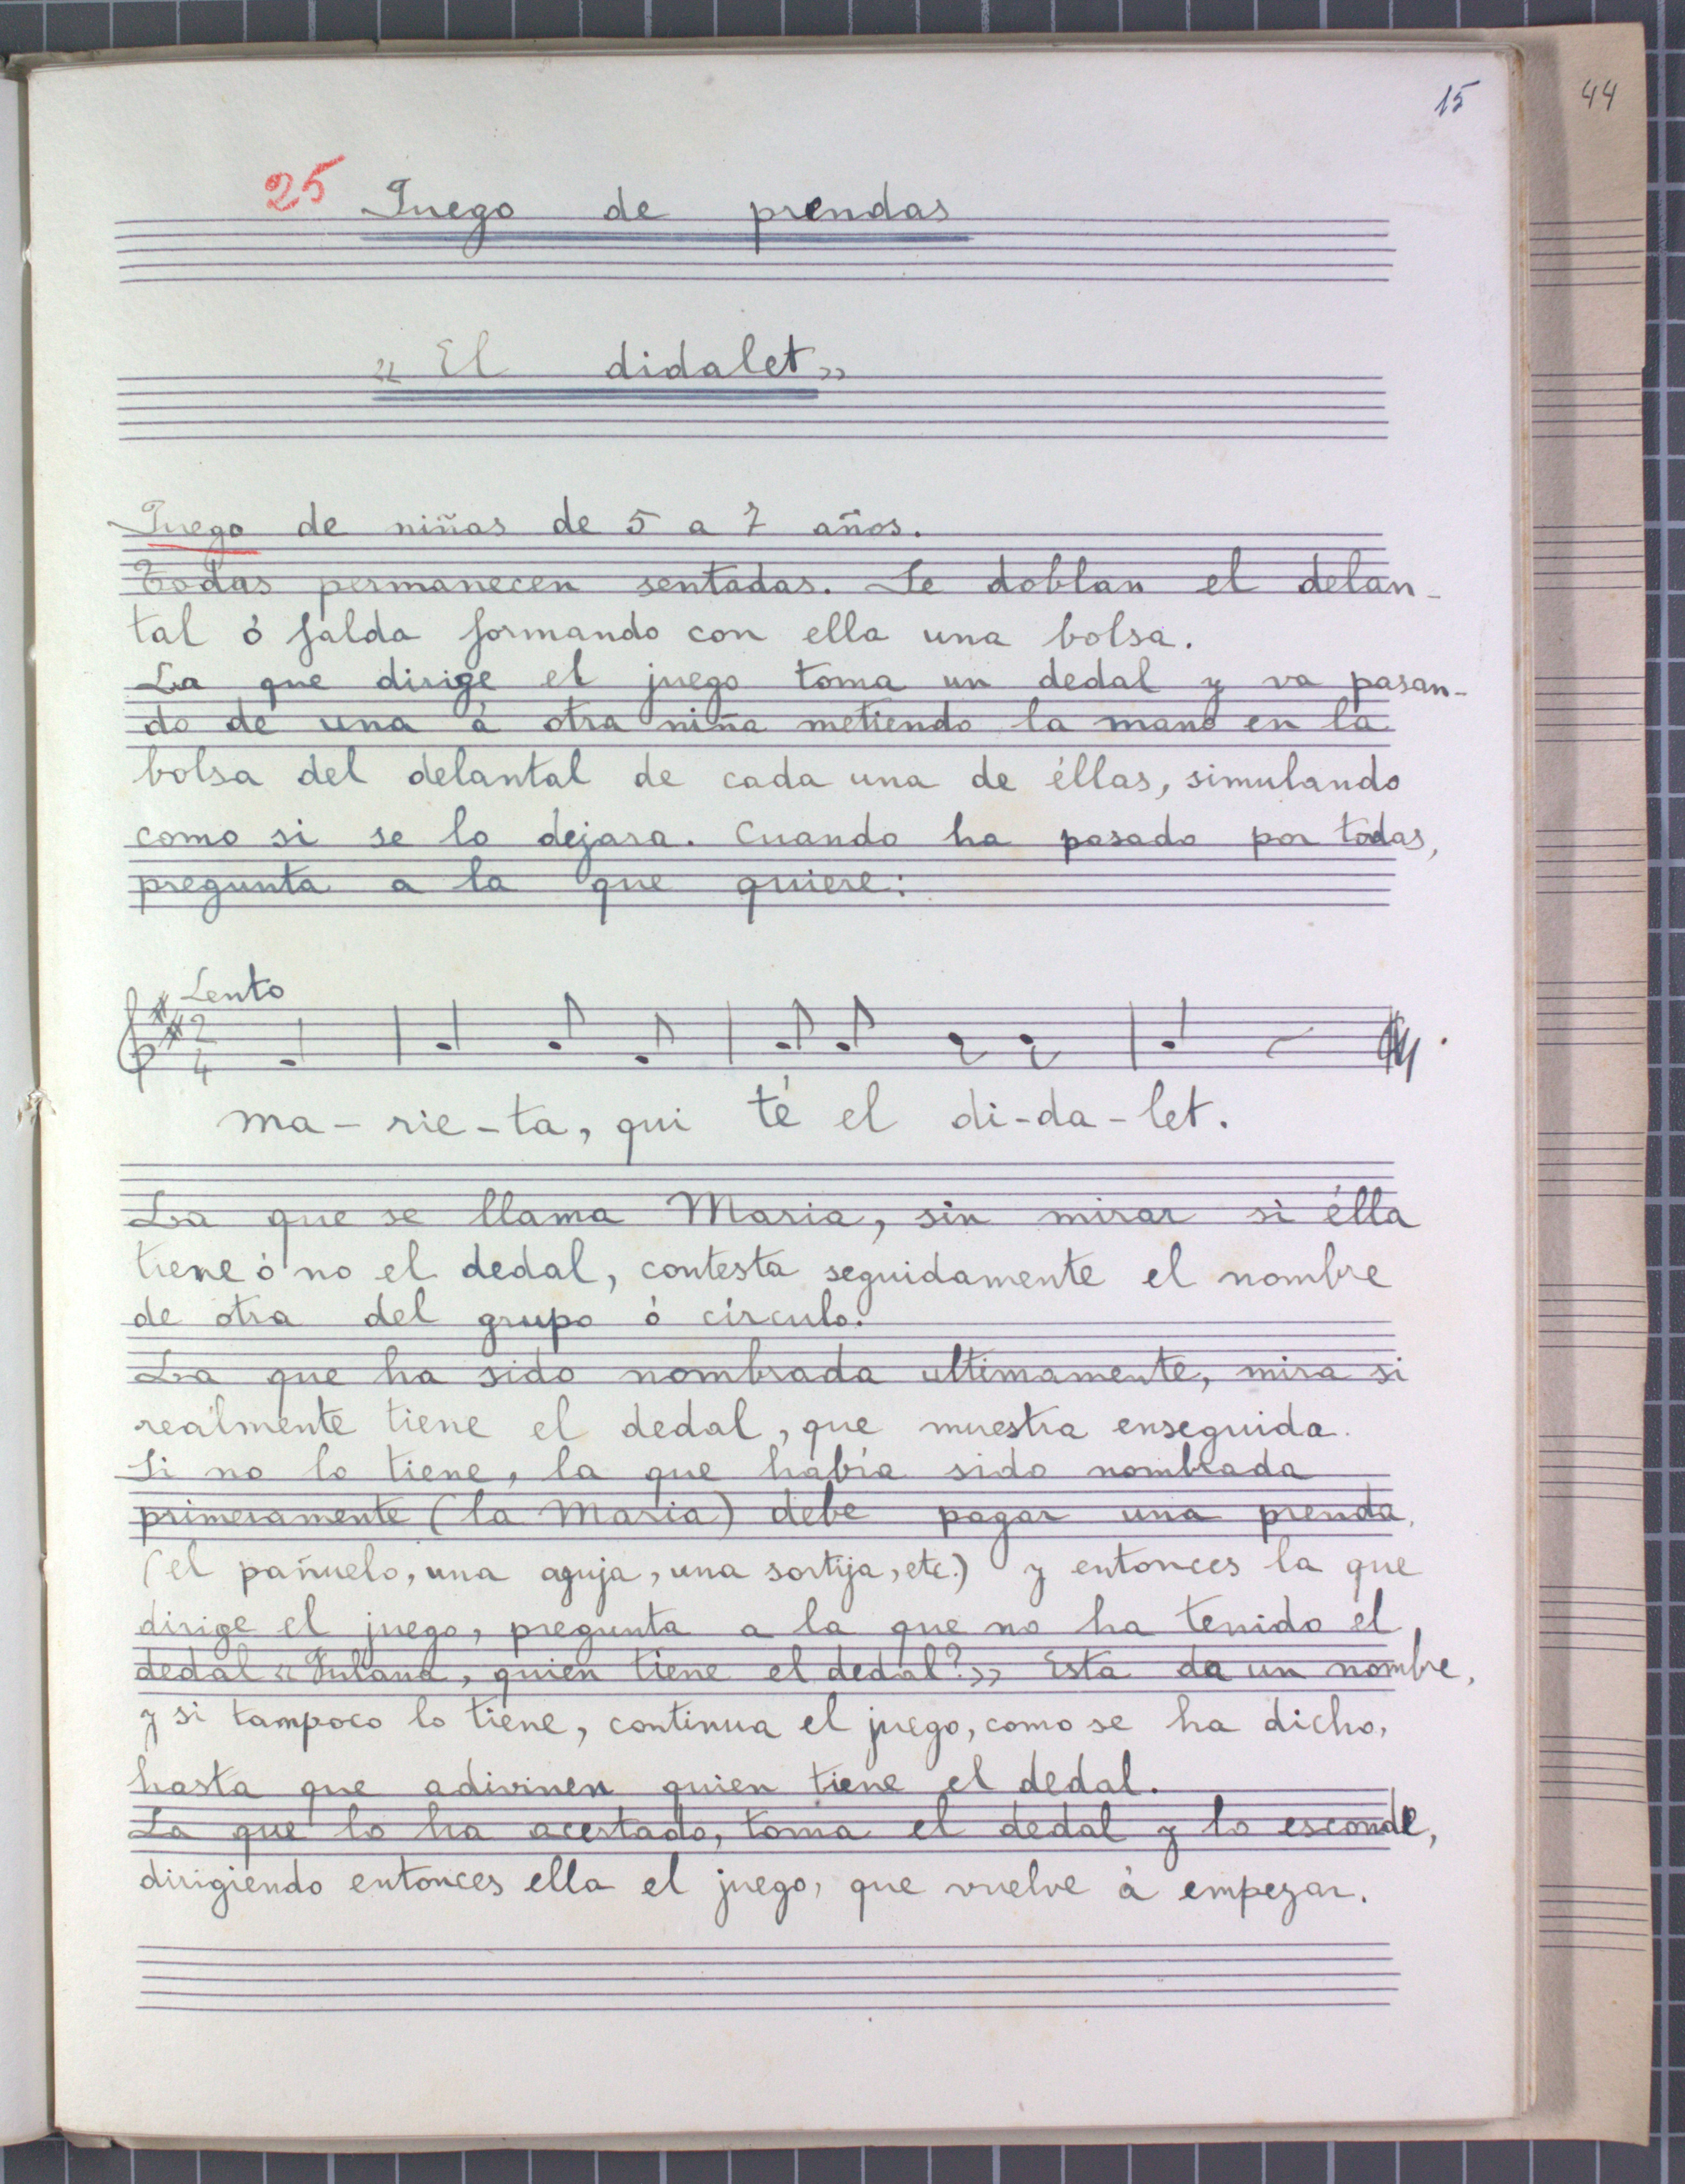 15
44
25 Juego de prendas
« El didalet »
Juego de niñas de 5 a 7 años.
Todas permanecen sentadas. Se doblan el delan-
tal ó falda formando con ella una bolsa.
La que dirige el juego toma un dedal y va pasan-
do de una á otra niña metiendo la mano en la
bolsa del delantal de cada una de éllas, simulando
como si se lo dejara. Cuando ha pasado por todas,
pregunta a la que quiere:
Lento
2
4
ma-rie-ta, qui té el di-da-let.
La que se llama Maria, sin mirar si élla
tiene ó no el dedal, contesta seguidamente el nombre
de otra del grupo ó círculo.
La que ha sido nombrada ultimamente, mira si
realmente tiene el dedal, que muestra enseguida.
Si no lo tiene, la que había sido nombrada
primeramente (la Maria) debe pagar una prenda,
(el pañuelo, una aguja, una sortija, etc.) y entonces la que
dirige el juego, pregunta a la que no ha tenido el
dedal « Fulana, quien tiene el dedal? » Esta da un nombre,
y si tampoco lo tiene, continua el juego, como se ha dicho,
hasta que adivinen quien tiene el dedal.
La que lo ha acertado, toma el dedal y lo esconde,
dirigiendo entonces ella el juego, que vuelve á empezar.